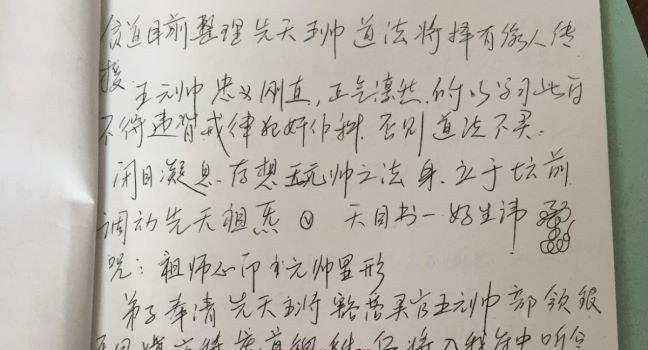 信道目前整理先天王帅道法将择有缘人传
接
王元帅忠义刚直,正气凛然,所以学习此百
不得违背戒律犯奸作科,否则道法不灵。
闭目凝息,存想王元帅之法身,立于坛前
调动先天祖炁 天目书一好生讳
咒:祖师心印 王元帅显形
弟子奉请先天主将 豁落灵官王元帅 部领银